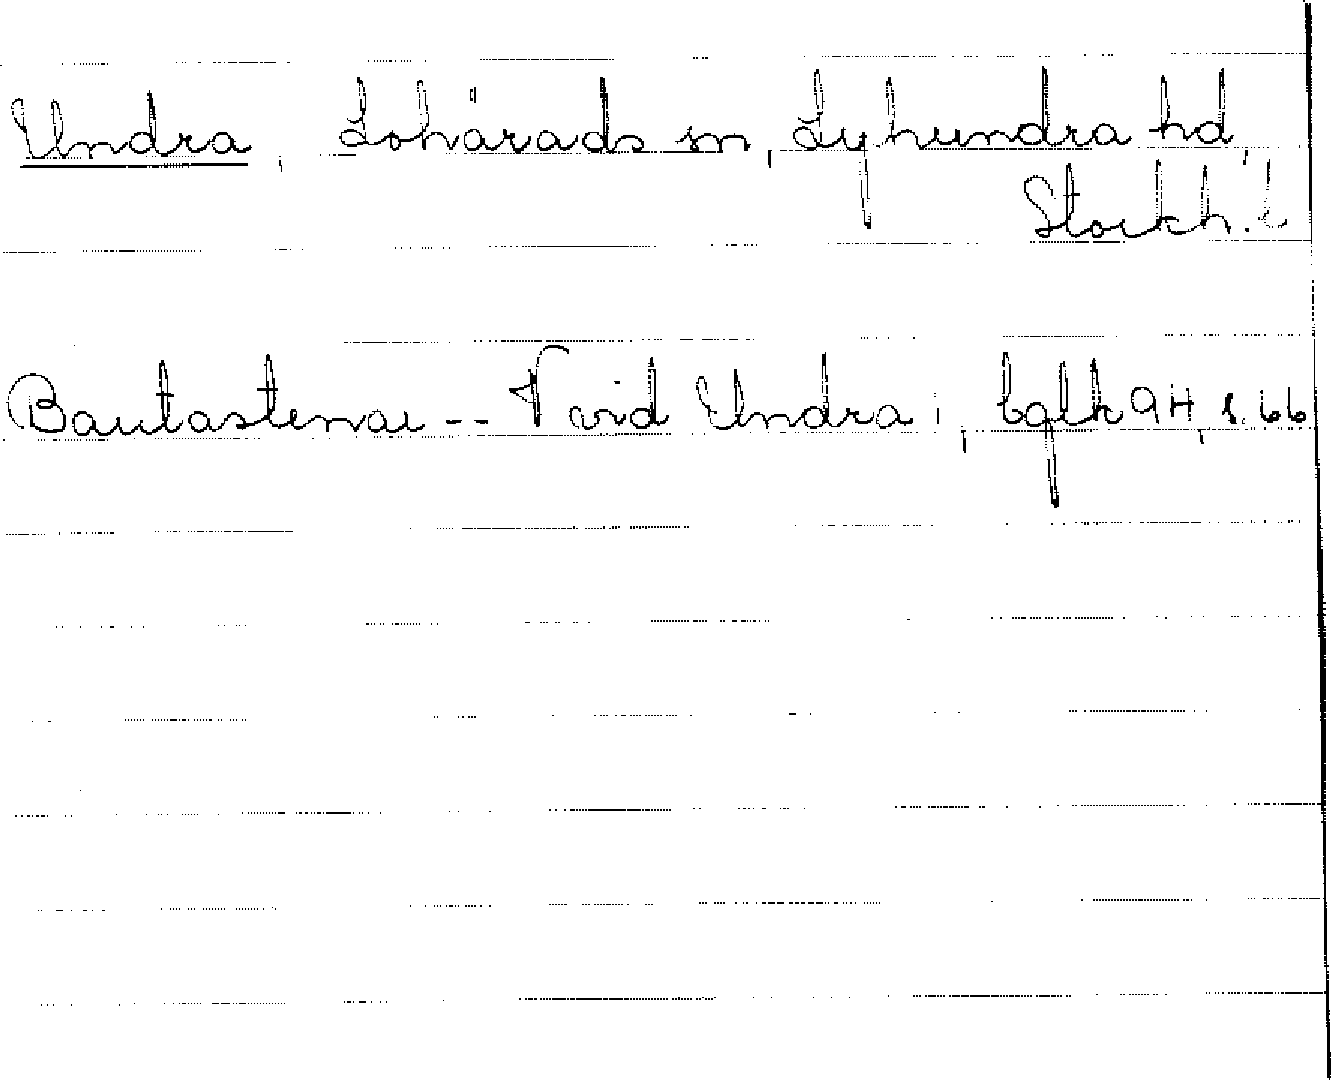 Undra, Lohärads sn, Lyhundra hd,
Stockh. l
Bautastenar -- vid Undra:, bglh 9H, s. 66